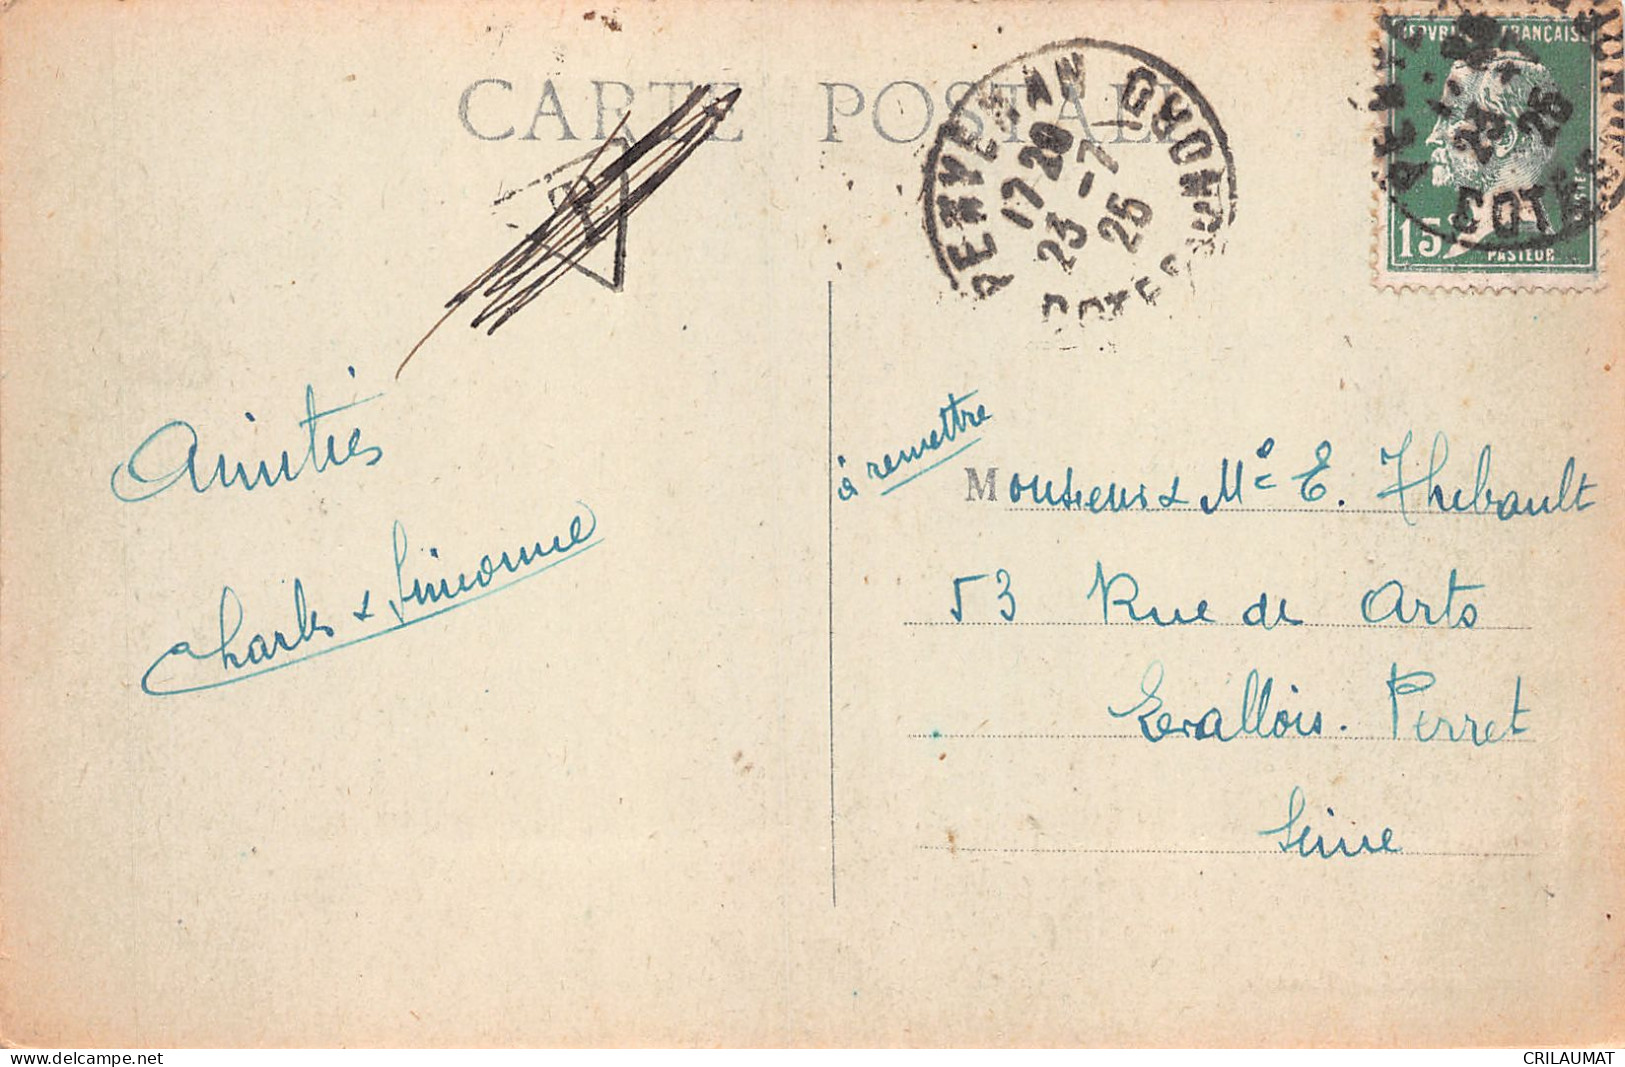 CARTE POSTALE
T
17 20
23 -7
25
RÉPUBLIQUE FRANÇAISE
23
25
15
PASTEUR
Amitiés
Charles & Simonne
à remettre
Monsieur & Me E. Thebault
53 Rue de Arts
Levallois. Perret
Seine
delcampe.net
CRILAUMAT